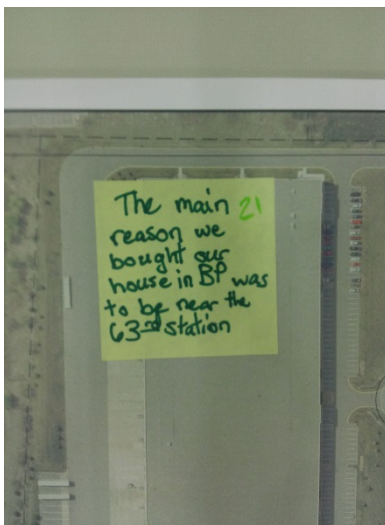 The main 21
reason we
bought our
house in BP was
to be near the
63rd station